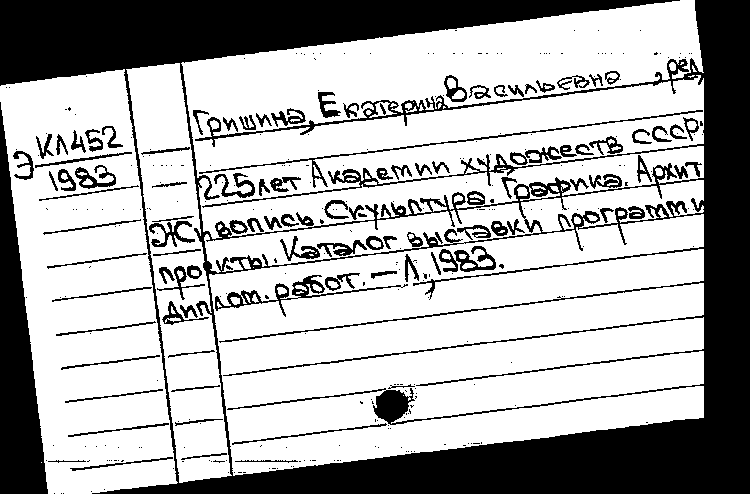 Гришина, Екатерина Васильевна, ред.
Э КЛ452
1983
225 лет Академии художеств СССР:
Живопись. Скульптура. Графика. Архит
проекты. Каталог выставки программ и
диплом. работ. — Л., 1983.